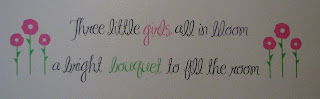 Three little girls all in bloom
a bright bouquet to fill the room